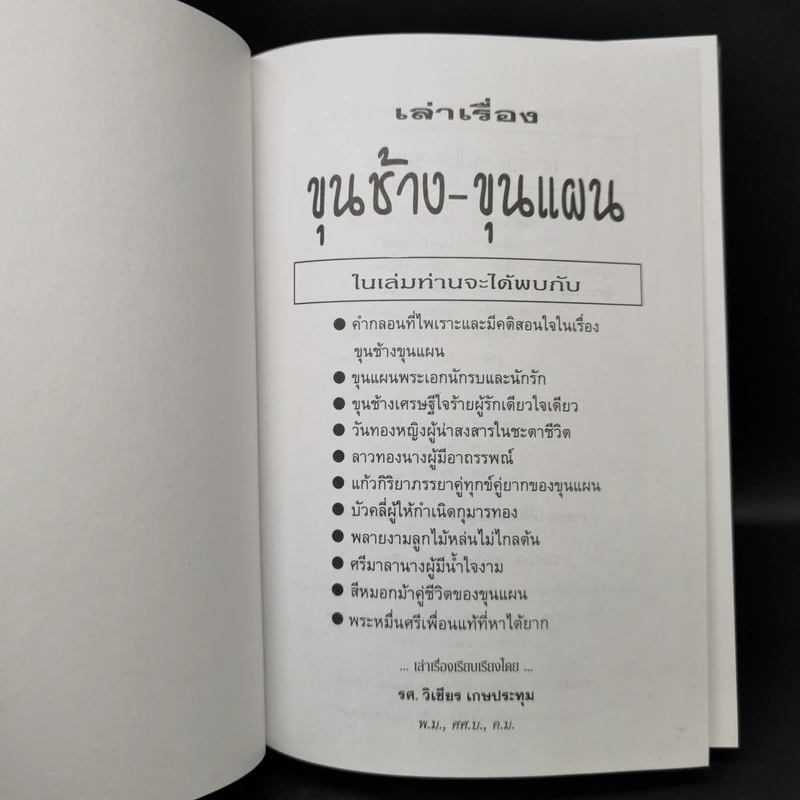 เล่าเรื่อง
ขุนช้าง-ขุนแผน
ในเล่มท่านจะได้พบกับ
● คำกลอนที่ไพเราะและมีคติสอนใจในเรื่อง
ขุนช้างขุนแผน
● ขุนแผนพระเอกนักรบและนักรัก
● ขุนช้างเศรษฐีใจร้ายผู้รักเดียวใจเดียว
● วันทองหญิงผู้น่าสงสารในชะตาชีวิต
● ลาวทองนางผู้มีอาถรรพณ์
● แก้วกิริยาภรรยาคู่ทุกข์คู่ยากของขุนแผน
● บัวคลี่ผู้ให้กำเนิดกุมารทอง
● พลายงามลูกไม้หล่นไม่ไกลต้น
● ศรีมาลานางผู้มีน้ำใจงาม
● สีหมอกม้าคู่ชีวิตของขุนแผน
● พระหมื่นศรีเพื่อนแท้ที่หาได้ยาก
... เล่าเรื่องเรียบเรียงโดย ...
รศ. วิเชียร เกษประทุม
พ.ม., ศศ.บ., ค.ม.